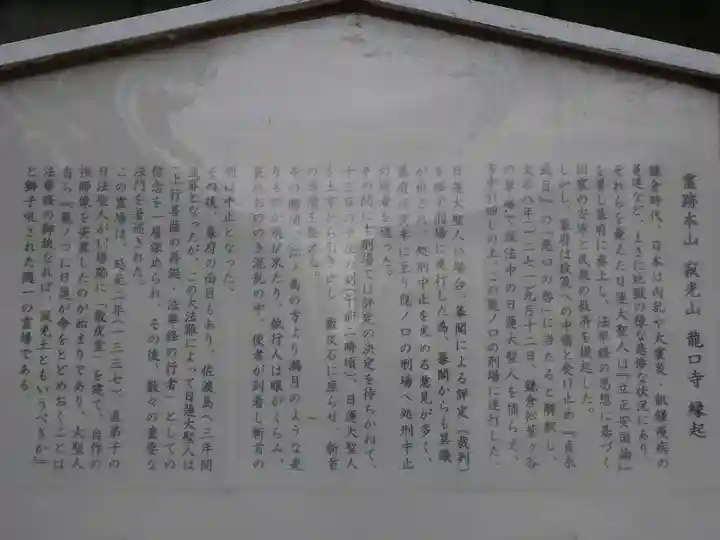 霊跡本山 寂光山 龍口寺 縁起
鎌倉時代、日本は内乱や大震災・飢饉疫病の
蔓延など、まさに地獄の様な悲惨な状況にあり、
それらを憂えた日蓮大聖人は『立正安国論』
を著し幕府に奏上し、法華経の思想に基づく
国家の安泰と民衆の救済を提起した。
しかし、幕府は政策への中傷と受け止め『貞永
式目』の「悪口の咎」に当たると解釈し、
文永八年(一二七一)九月十二日、鎌倉松葉ヶ谷
の草庵で説法中の日蓮大聖人を捕らえ、
市中引回しの上、この龍ノ口の刑場に連行した。
日蓮大聖人の場合、幕閣による評定(裁判)
を経ず刑場に連行した為、幕閣からも異議
が出され、処刑中止を求める意見が多く、
幕府は深夜に至り龍ノ口の刑場へ処刑中止
の使者を送った。
その間にも刑場では評定の決定を待ちかねて、
十三日の丑の刻(午前二時頃)、日蓮大聖人
を土牢から引き出し、敷皮石に座らせ、斬首
の準備を整えた。
その瞬間、江ノ島の方より満月のような光
りものが飛び来たり、執行人は眼がくらみ、
畏れおののき混乱の中、使者が到着し斬首の
刑は中止となった。
その後、幕府の面目もあり、佐渡島へ三年間
流罪となったが、この大法難によって日蓮大聖人は
「上行菩薩の再誕・法華経の行者」としての
信念を一層深められ、その後、数々の重要な
法門を著述された。
この霊場は、延元二年(一三三七)直弟子の
日法聖人がこの場所に「敷皮堂」を建て、自作の
祖師像を安置したのが始まりであり、大聖人
自ら『龍ノ口に日蓮が命をとどめおくことは
法華経の御故なれば、寂光土ともいうべきか』
と獅子吼された随一の霊場である。